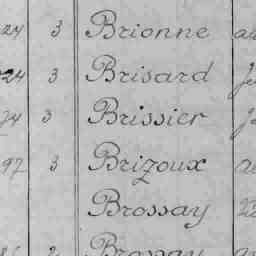 24 3 Brionne
24 3 Brisard
74 3 Brissier
97 3 Brizoux
Brossay
Brossay